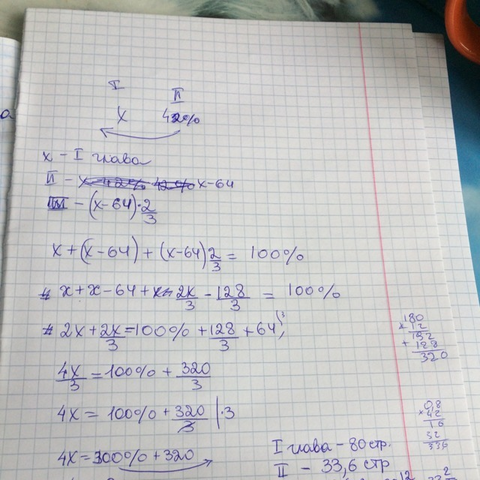 I II
x 42%
x - I глава
II - x-64
III - (x-64)·2/3
x+(x-64)+(x-64)2/3 = 100%
x+x-64+ 2x/3 - 128/3 = 100%
2x+2x/3=100%+128/3+64
4x/3=100%+320/3
4x=100%+320/3 |·3
4x=300%+320
I глава - 80 стр.
II - 33,6 стр
320
0,8
×42